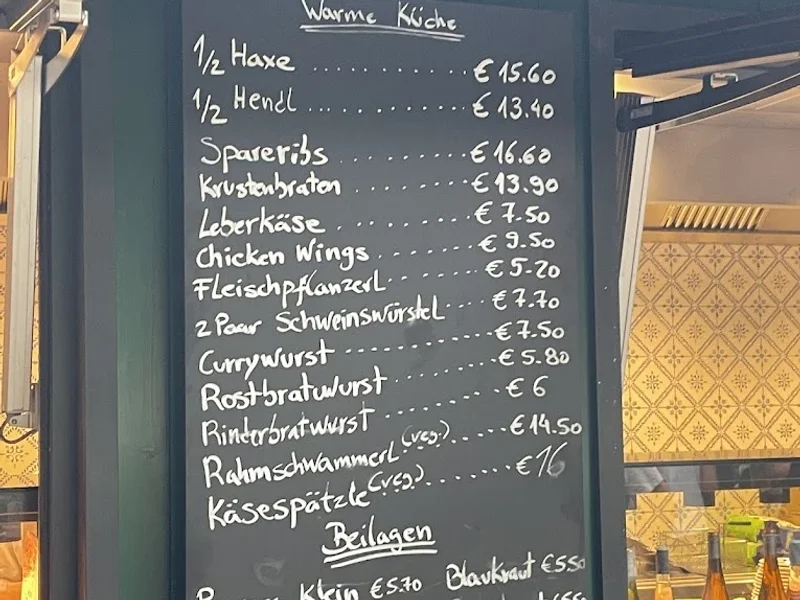 Warme Küche
1/2 Haxe ........... € 15.60
1/2 Hendl ............ € 13.40
Spareribs ......... € 16.60
Krustenbraten ........ € 13.90
Leberkäse ......... € 7.50
Chicken Wings ....... € 9.50
Fleischpflanzerl ....... € 5.20
2 Paar Schweinswürstel ... € 7.70
Currywurst ........... € 7.50
Rostbratwurst ........ € 5.80
Rinderbratwurst ....... € 6
Rahmschwammerl (veg.) ..... € 14.50
Käsespätzle (veg.) ........ € 16
Beilagen
Klein € 5.70 Blaukraut € 5.50